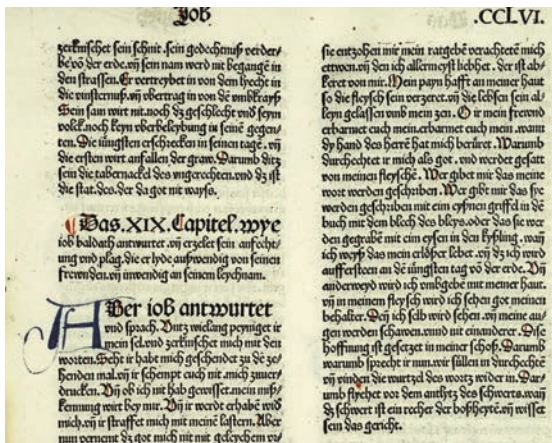 Job
.CCLVI.
zerknischet sein schnit .sein gedechtnuß verder/
be vō der erde.vn̄ sein nam werd nit begangē in
den strassen. Er vertreybet in von dem lyecht in
die vinsternuß.vn̄ vbertrag in von dē vmbkrayß
Sein sam wirt nit.noch dz geschlecht vnd seyn
volck.noch keyn vberbeleybung in seinē gegen/
ten. Die iüngsten erschrecken in seinen tagē. vn̄
die ersten wirt anfallen der graw. Darumb ditz
sein die tabernackel des vngerechten.vnd dz ist
die stat.des.der da got nit wayß.
Das.XIX.Capitel.wye
iob baldath antwurtet.vn̄ erzelet sein anfecht/
ung vnd plag.die er lyde außwendig von seinen
frewnden.vn̄ inwendig an seinem leychnam.
ABer iob antwurtet
vnd sprach. Untz wielang peyniget ir
mein sel.vnd zerknischet mich mit den
worten. Seht ir habt mich geschendet zu dē ze/
henden mal.vn̄ ir schempt euch nit.mich zuuer/
drucken. Vn̄ ob ich nit hab gewisset.mein miß/
kennung wirt bey mir. Vn̄ ir werdt erhabē wid
mich.vn̄ ir straffet mich mit meinē lastern. Aber
nun vernemt dz got mich nit mit geleychem vr/
sie entzohen mir mein ratgebē verachtetē mich
ettwen.vn̄ den ich allermeyst liebhet .der ist ab/
keret von mir. Mein payn hafft an meiner haut
so die fleysch sein verzeret.vn̄ die lebsen sein al/
leyn gelassen vmb mein zen. O ir mein frewnd
erbarmet euch mein.erbarmet euch mein .wann
dy hand des herrē hat mich berüret. Warumb
durchechtet ir mich als got .vnd werdet gesatt
von meinen fleyschē. Wer gibet mir das meine
wort werden geschriben. Wer gibt mir das sye
werden geschriben mit eim eyßnen griffel in dē
buch mit dem blech des bleys.oder das sie wer
den gegrabē mit eim eysen in den kyßling. wan̄
ich weyß das mein erlößer lebet .vn̄ dz ich wird
aufferstern an dē iüngsten tag vō der erde. Vn̄
anderweyd wird ich vmbgebē mit meiner haut.
vn̄ in meinem fleysch wird ich sehen got meinen
behalter. Den̄ ich selb wird sehen .vn̄ meine au/
gen werden schawen.vnnd nit einanderer .Dise
hoffnung ist gesetzet in meiner schoß. Darumb
warumb sprecht ir nun.wir süllen in durchechtē
vn̄ vinden die wurtzel des wortz wider in. Dar/
umb flyehet vor dem antlytz des schwerts.wan̄
dz schwert ist ein recher der boßheytē.vn̄ wisset
sein das gericht.